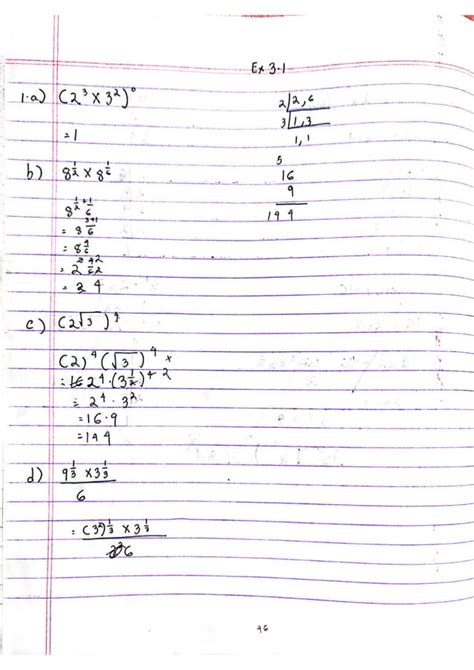 Ex 3.1
1.a) (2³ × 3²)⁰
= 1
2|2,6
3|1,3
1,1
b) 8^½ × 8^⅙
8^(½+⅙)
= 8^((3+1)/6)
= 8^(4/6)
= 4
5
16
9
144
c) (2√3)⁴
(2)⁴(√3)⁴
= 2⁴·(3^½)⁴
= 2⁴·3²
= 16·9
= 144
d) 9^⅓ × 3^⅓
6
= (3²)^⅓ × 3^⅓
6
46